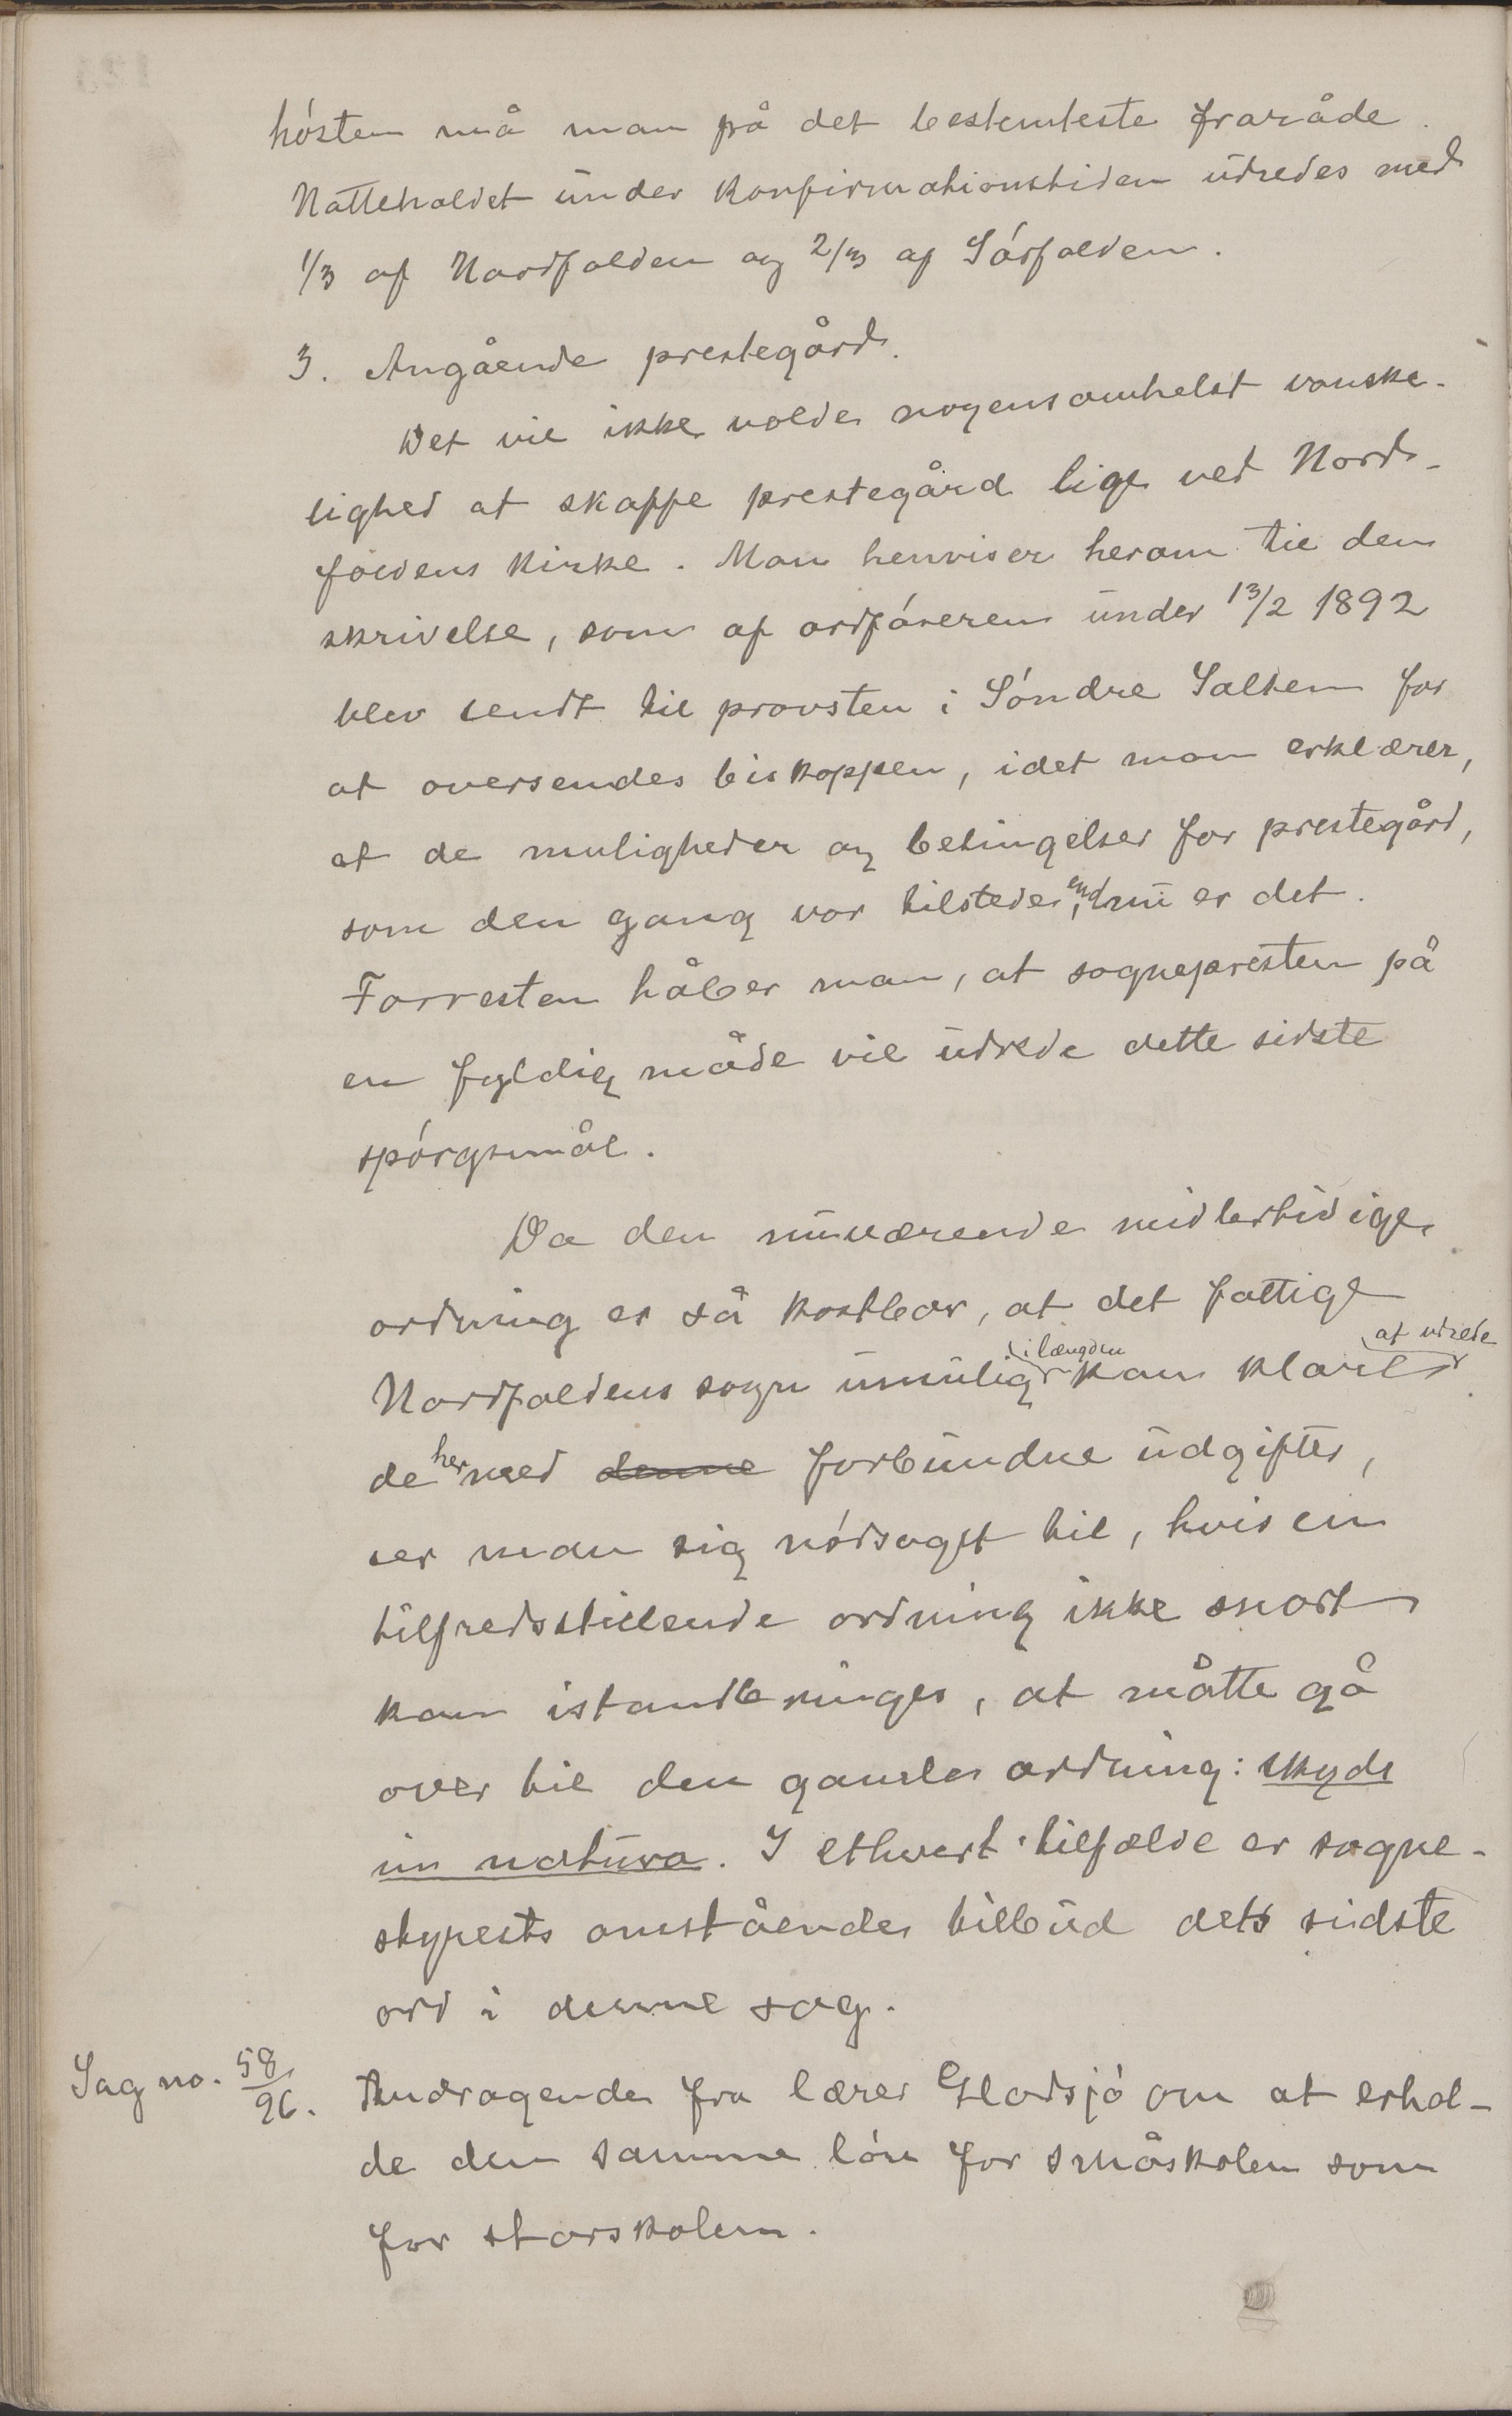 hósten må man på det bestemteste fraråde.
Natteholdet under konfirmationstiden udredes med
1/3 af Nordfolden og 2/3 af Sórfolden.
3. Angående prestegård.
Det vil ikke volde nogensomhelst vanske-
lighed at skaffe prestegård lige ved Nord-
foldens kirke. Man henviser herom til den
skrivelse, som af ordfóreren under 13/2 1892
blev sendt til provsten i Sóndre Salten for
at oversendes biskoppen, idet man erklærer,
at de muligheder og betingelser for prestegård,
som den gang var tilstede, end nu er det.
Forresten håber man, at sognepresten på
en fyldig måde vil udrede dette sidste
spórgsmål.
Da den nuværende midlertidige
ordning er så kostbar, at det fattige
Nordfoldens sogn umulig i længden kan klare at udrede
de hermed denne forbundne udgifter,
ser man sig nódsaget til, hvis en
tilfredsstillende ordning ikke snart
kan istandbringes, at måtte gå
over til den gamle ordning: skyds
in natura. I ethvert tilfælde er sogne-
styrets omstående tilbud dets sidste
ord i denne sag.
Sag no. 58/96. Andragende fra lærer Elvodsjó om at erhol-
de den samme lón for småskolen som
for storskolen.